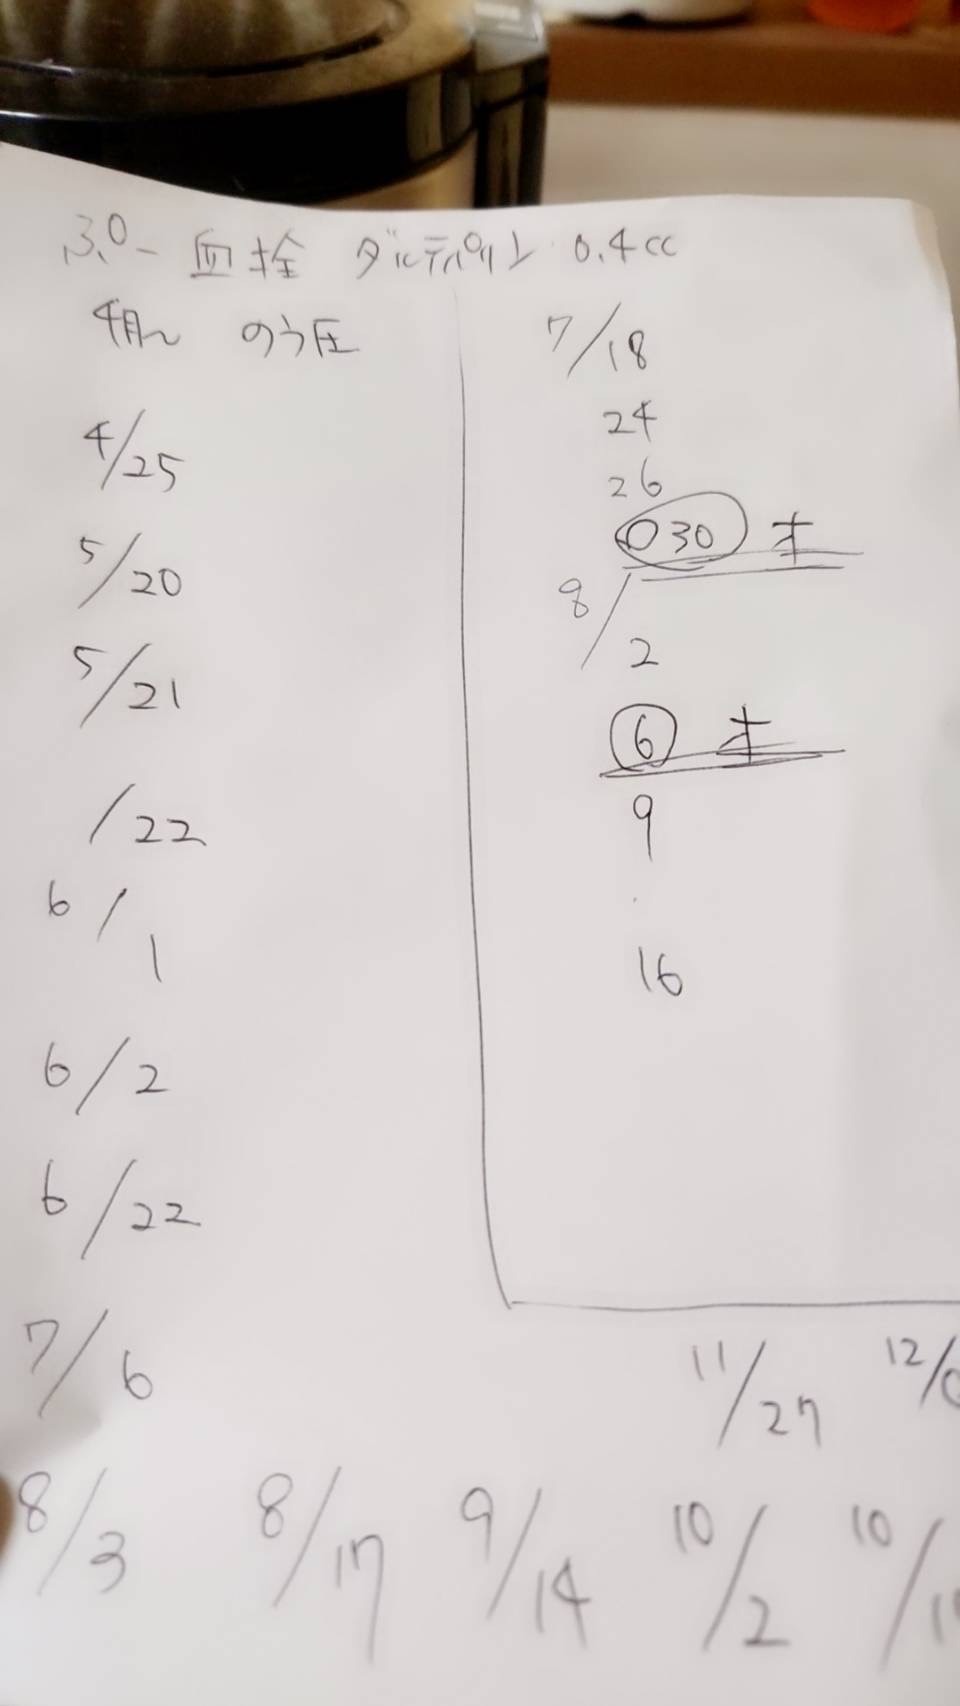 血栓 ダルテパリン 0.4cc
のう圧
4/25
5/20
5/21
/22
6/1
6/2
6/22
7/6
7/18
24
26
30 オ
8/2
6 オ
9
16
11/27 12/
8/3 8/17 9/14 10/2 10/1